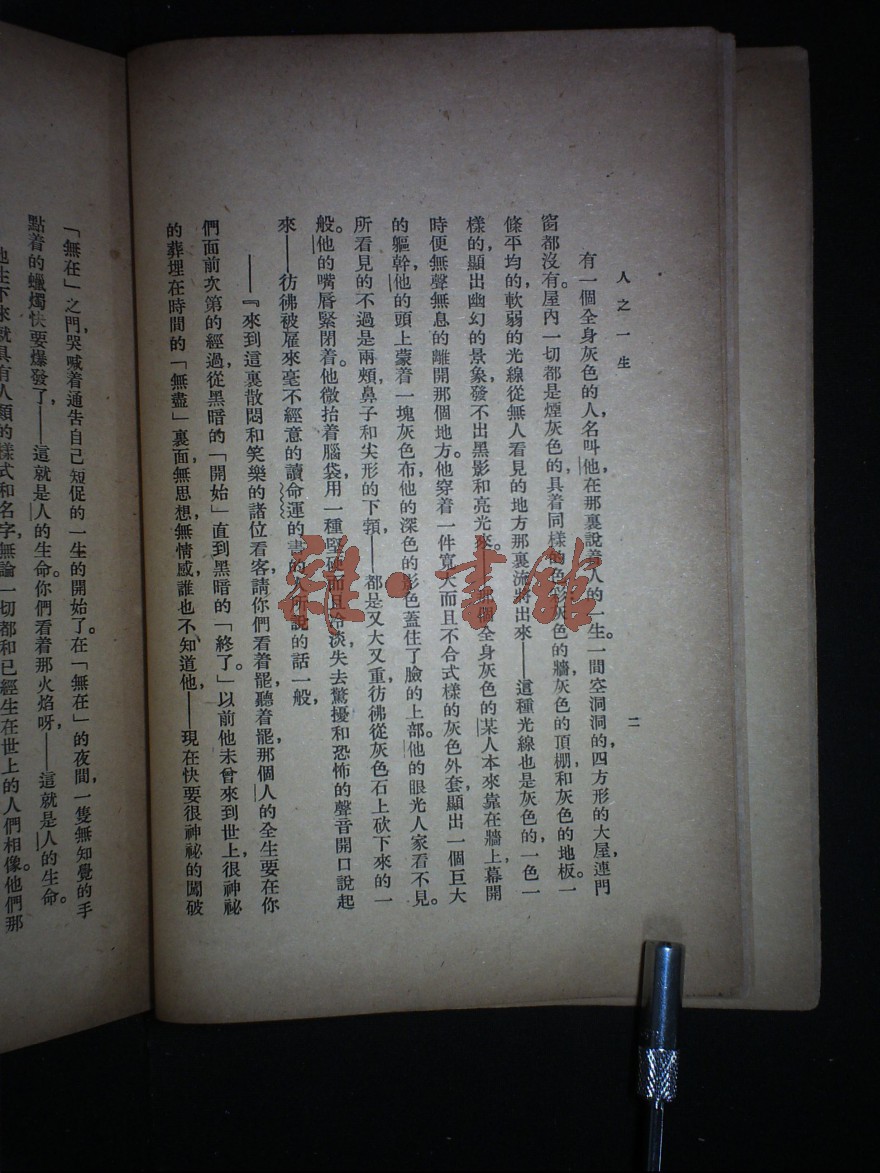 人之一生
二
有一個全身灰色的人，名叫他，在那裏說着人的一生。一間空洞洞的，四方形的大屋，連門
窗都沒有。屋內一切都是煙灰色的，具着同樣的色彩，灰色的牆，灰色的頂棚和灰色的地板。一
條平均的，軟弱的光線從無人看見的地方那裏流將出來——這種光線也是灰色的，一色一
樣的，顯出幽幻的景象，發不出黑影和亮光來。那個全身灰色的某人本來靠在牆上，幕開
時便無聲無息的離開那個地方。他穿着一件寬大而且不合式樣的灰色外套，顯出一個巨大
的軀幹；他的頭上蒙着一塊灰色布，他的深色的影色蓋住了臉的上部。他的眼光人家看不見。
所看見的不過是兩頰，鼻子和尖形的下頷——都是又大又重，彷彿從灰色石上砍下來的一
般。他的嘴唇緊閉着。他微抬着腦袋，用一種堅硬而且冷淡，失去驚擾和恐怖的聲音開口說起
來——彷彿被雇來毫不經意的讀命運的書的人所說的話一般，
——『來到這裏散悶和笑樂的諸位看客，請你們看着罷，聽着罷，那個人的全生要在你
們面前次第的經過，從黑暗的「開始」直到黑暗的「終了」。以前他未曾來到世上，很神祕
的葬埋在時間的「無盡」裏面，無思想，無情感，誰也不知道他，——現在快要很神祕的闖破
「無在」之門，哭喊着通告自己短促的一生的開始了。在「無在」的夜間，一隻無知覺的手
點着的蠟燭快要爆發了，——這就是人的生命。你們看着那火焰呀，——這就是人的生命。
他生下來就具有人類的樣式和名字，無論一切都和已經生在世上的人們相像。他們那
雜·書館